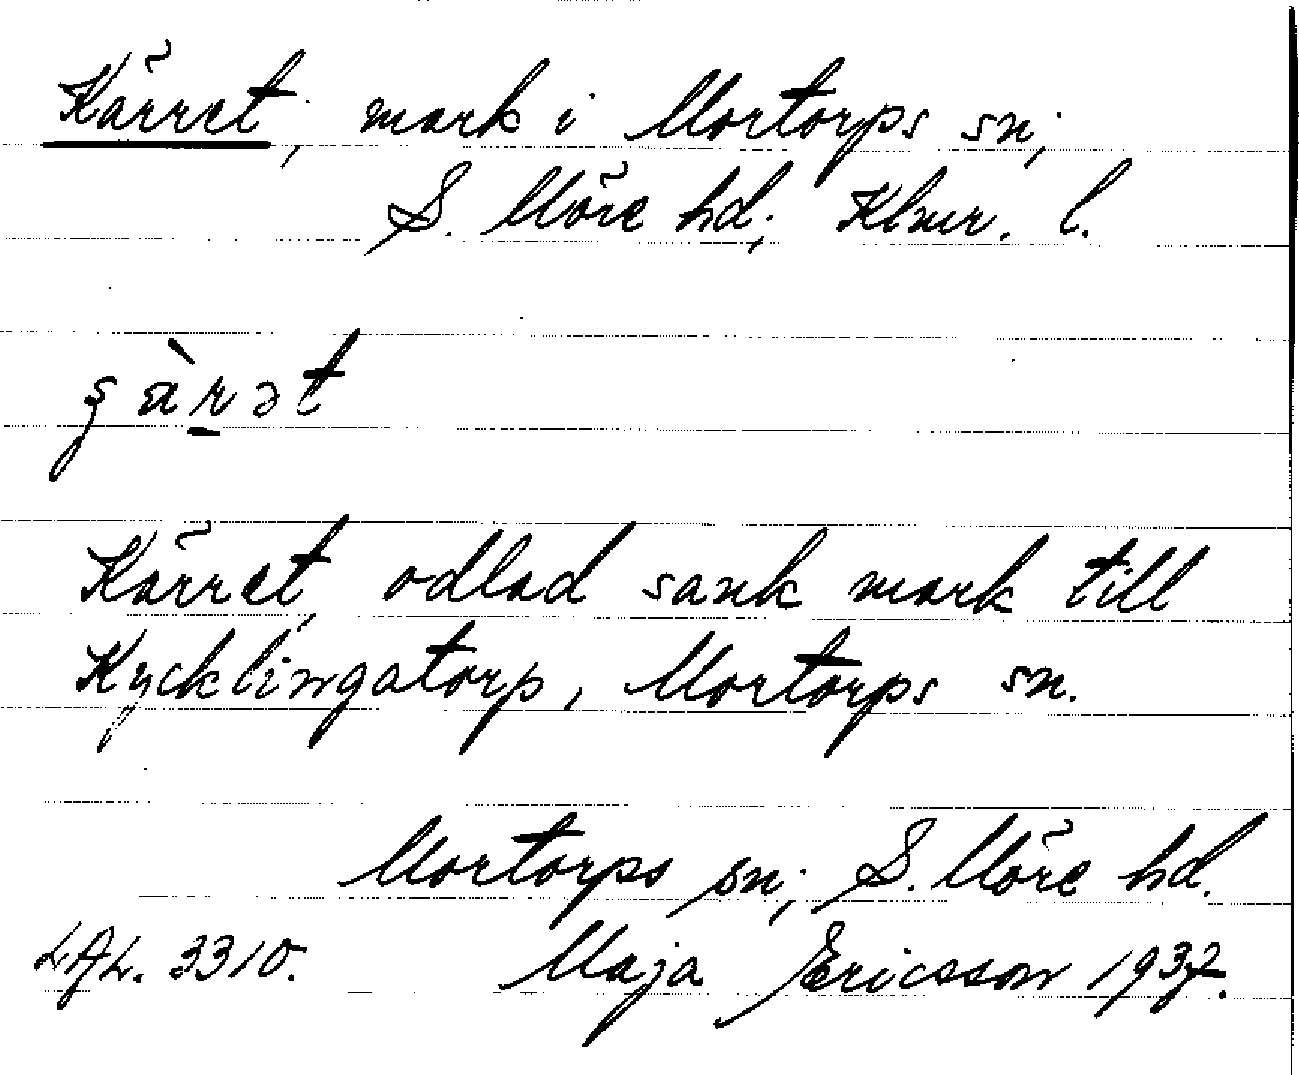 Kärret, mark i Mortorps sn,
S. Möre hd, Klmr. l.
Kärret, odlad sank mark till
Kycklingatorp, Mortorps sn.
Mortorps sn, S. Möre hd.
LAL. 3310. Maja Ericsson 1937.